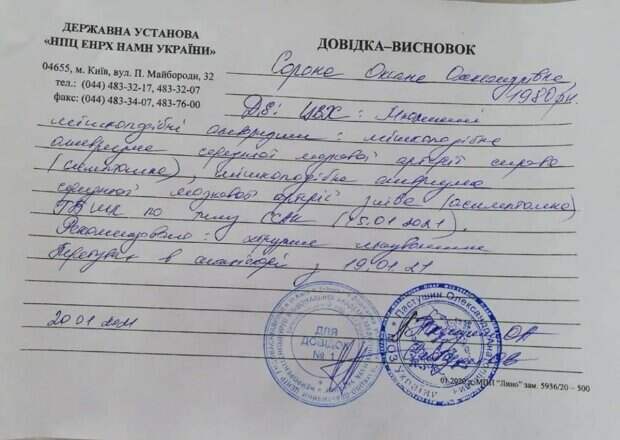 ДЕРЖАВНА УСТАНОВА
«НПЦ ЕНРХ НАМН УКРАЇНИ»
04655, м. Київ, вул. П. Майбороди, 32
тел.: (044) 483-32-17, 483-32-07
факс: (044) 483-34-07, 483-76-00
ДОВІДКА–ВИСНОВОК
Сорока Оксана Олександрівна,
1980 рн.
DS: ЦВХ: Множинні
мішкоподібні аневризми: мішкоподібна
аневризма середньої мозкової артерії справа
(симптомна), мішкоподібна аневризма
середньої мозкової артерії зліва (асимптомна)
ГПМК по типу САК (15.01.2021).
Рекомендовано: хірургічне лікування
Перебуває в стаціонарі з 19.01.21
20 01 2021
ДЛЯ
ДОВІДОК
№ 1
Пастушин Олександр
03.2020 р. МПП "Лино" зам. 5936/20 – 500